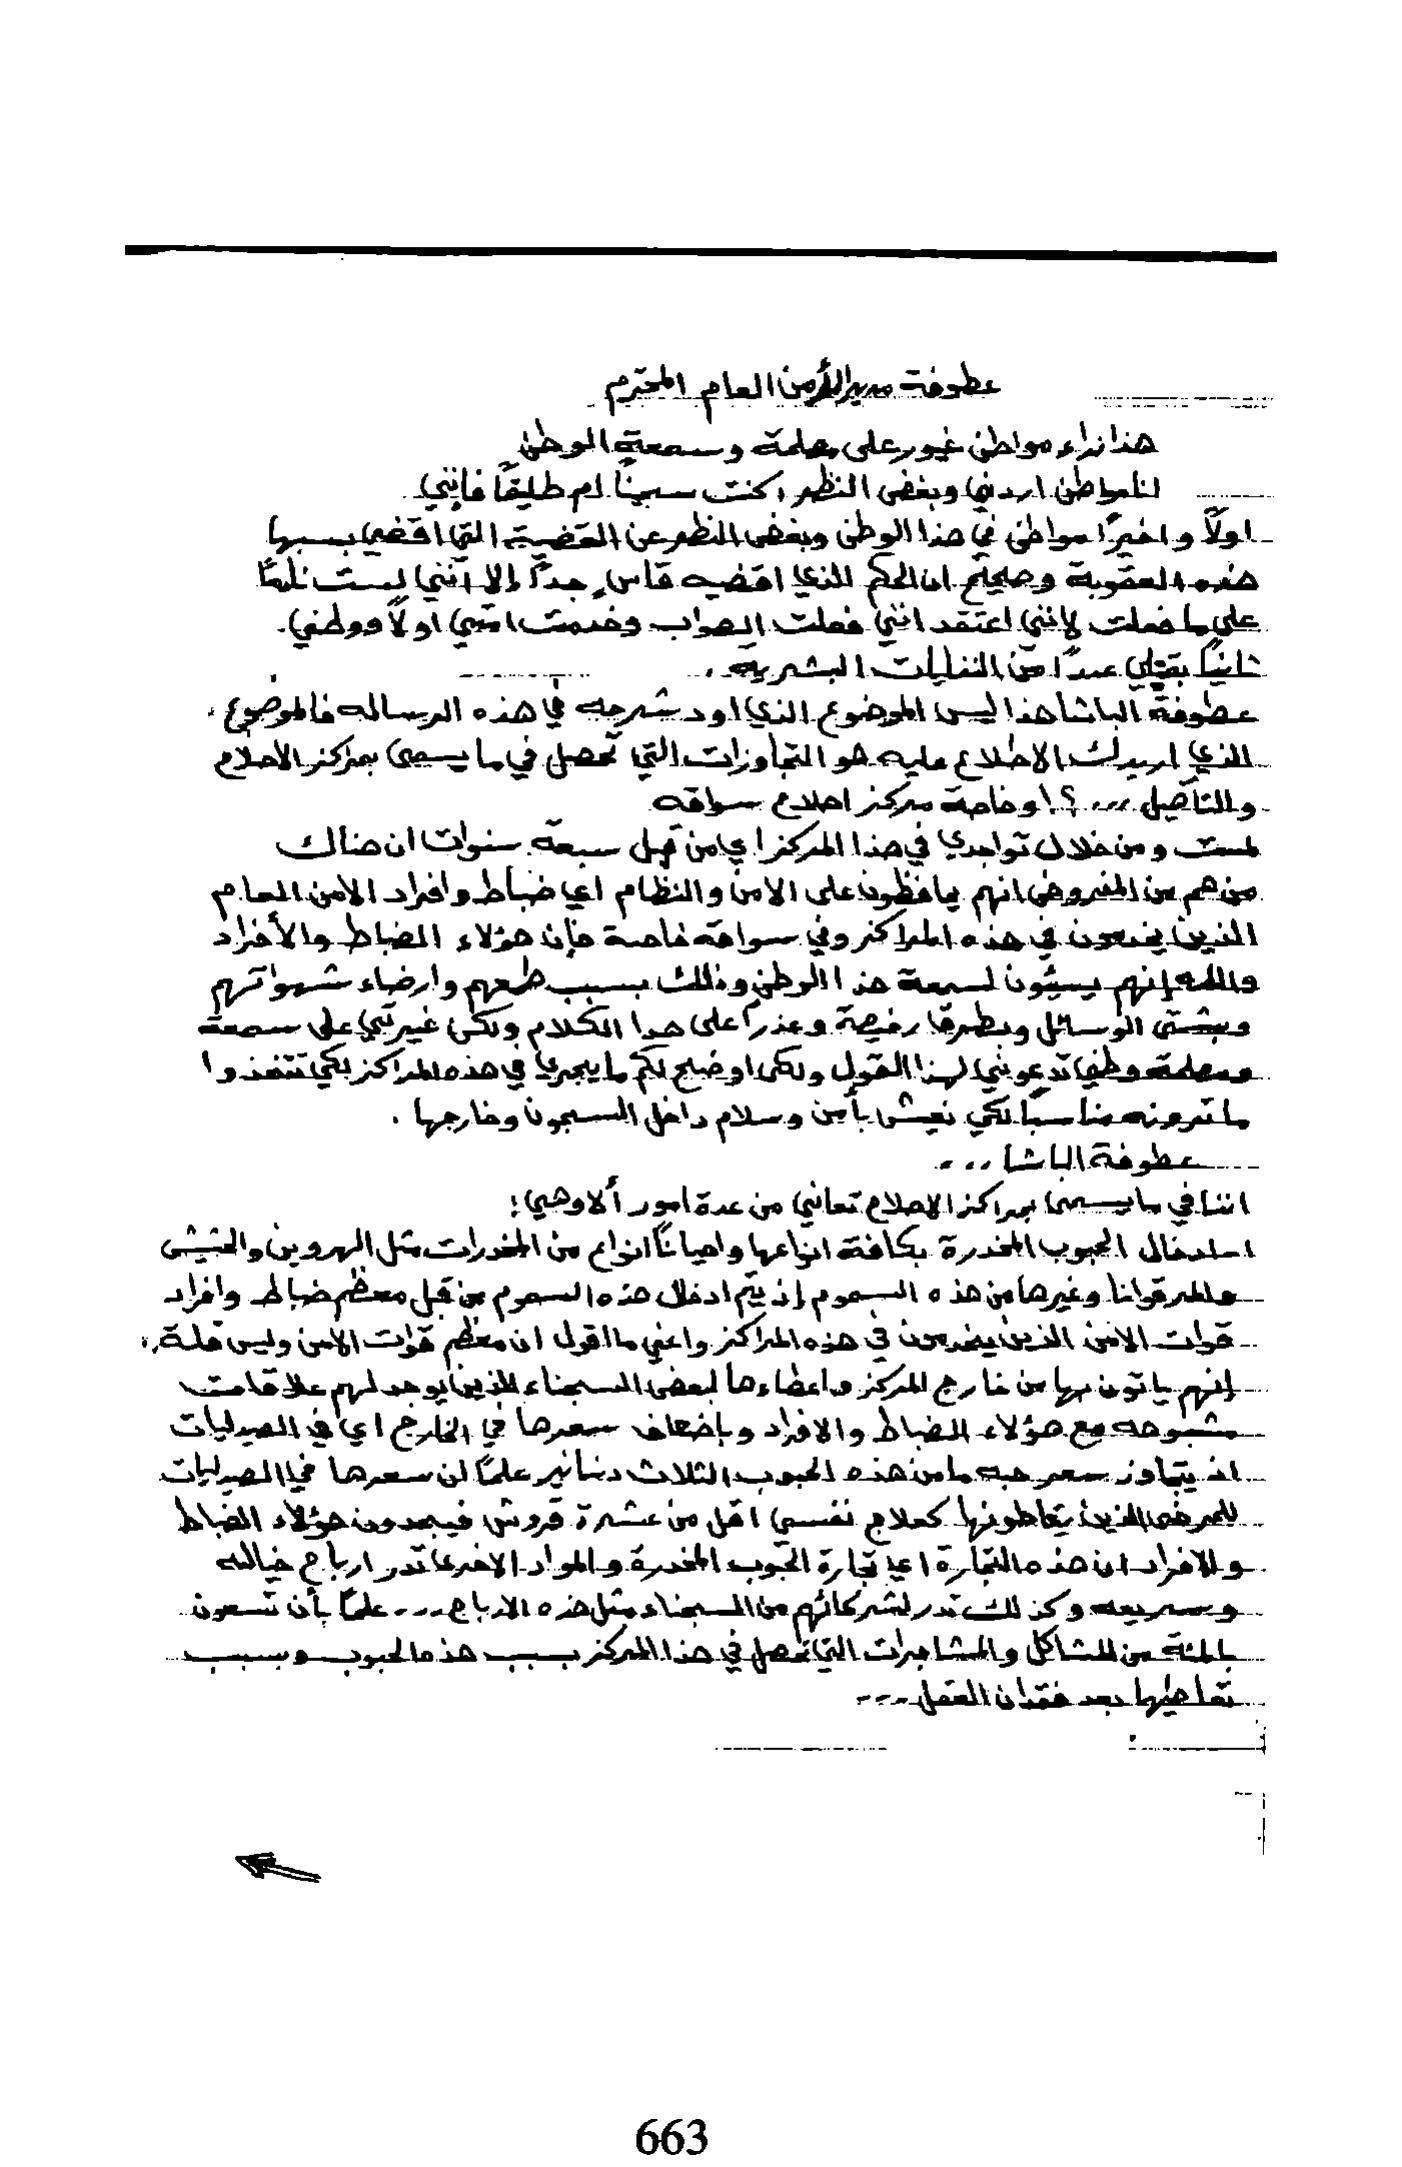 عطوفة مدير الأمن العام المحترم
هذا نداء مواطن غيور على مصلحة وسمعة الوطن
انا مواطن اردني وبغض النظر اكنت سجيناً ام طليقاً فإنني
اولاً واخيراً مواطن في هذا الوطن وبغض النظر عن القضية التي اقضي بسببها
هذه العقوبة وصحيح ان الحكم الذي اقضيه قاسٍ جداً إلا انني لست نادماً
على ما فعلت لإنني اعتقد انني فعلت الصواب وخدمت امتي اولاً ووطني
ثانياً بقتلي عدداً من النفايات البشرية .
عطوفة الباشا هذا ليس الموضوع الذي اود شرحه في هذه الرساله فالموضوع
الذي اريدك الاطلاع عليه هو التجاوزات التي تحصل في ما يسمى بمراكز الاصلاح
والتأهيل ...؟! وخاصة مركز اصلاح سواقه
لمست ومن خلال تواجدي في هذا المركز اي من قبل سبعة سنوات ان هناك
من هم من المفروض انهم يحافظون على الامن والنظام اي ضباط وافراد الامن العام
الذين يخدمون في هذه المراكز وفي سواقة خاصة فإن هؤلاء الضباط والأفراد
والله إنهم يسيئون لسمعة هذا الوطن وذلك بسبب طمعهم وارضاء شهواتهم
وبشتى الوسائل وبطرق رخيصة وعذراً على هذا الكلام ولكن غيرتي على سمعة
ومصلحة وطني تدعوني لهذا القول ولكي اوضح لكم ما يجري في هذه المراكز لكي تتخذوا
ما ترونه مناسباً لكي نعيش بأمن وسلام داخل السجون وخارجها .
عطوفة الباشا ...
اننا في ما يسمى بمراكز الاصلاح نعاني من عدة امور ألا وهي :
١ـ ادخال الحبوب المخدرة بكافة انواعها واحياناً انواع من المخدرات مثل الهروين والحشيش
والمرقوانا وغيرها من هذه السموم إذ يتم ادخال هذه السموم من قبل معظم ضباط وافراد
قوات الامن الذين يخدمون في هذه المراكز واعني ما اقول ان معظم قوات الامن وليس قلة ..
إنهم ياتون بها من خارج المركز واعطاءها لبعض السجناء الذين يوجد لهم علاقات
مشبوهه مع هؤلاء الضباط والافراد وبإضعاف سعرها في الخارج اي في الصيدليات
اذ يتجاوز سعر حبه ما من هذه الحبوب الثلاث دنانير علماً ان سعرها في الصيدليات
للمرضى الذين يتعاطونها كعلاج نفسي اقل من عشرة قروش فيجدون هؤلاء الضباط
والافراد ان هذه التجارة اي تجارة الحبوب المخدرة والمواد الاخرى تدر ارباح خياليه
وسريعه وكذلك تدر لشركائهم من السجناء مثل هذه الارباح ... علماً بأن تسعون
بالمئة من المشاكل والمشاجرات التي تحصل في هذا المركز بسبب هذه الحبوب وبسبب
تعاطيها بعد فقدان العقل ...
663